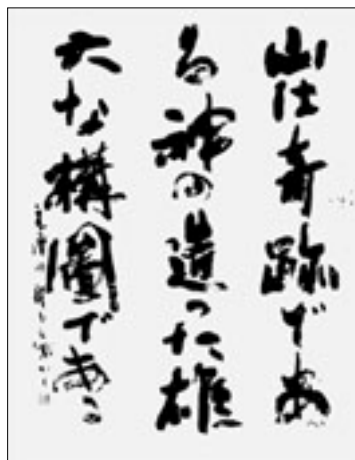 山は奇跡であ
る神の造った雄
大な構圖である